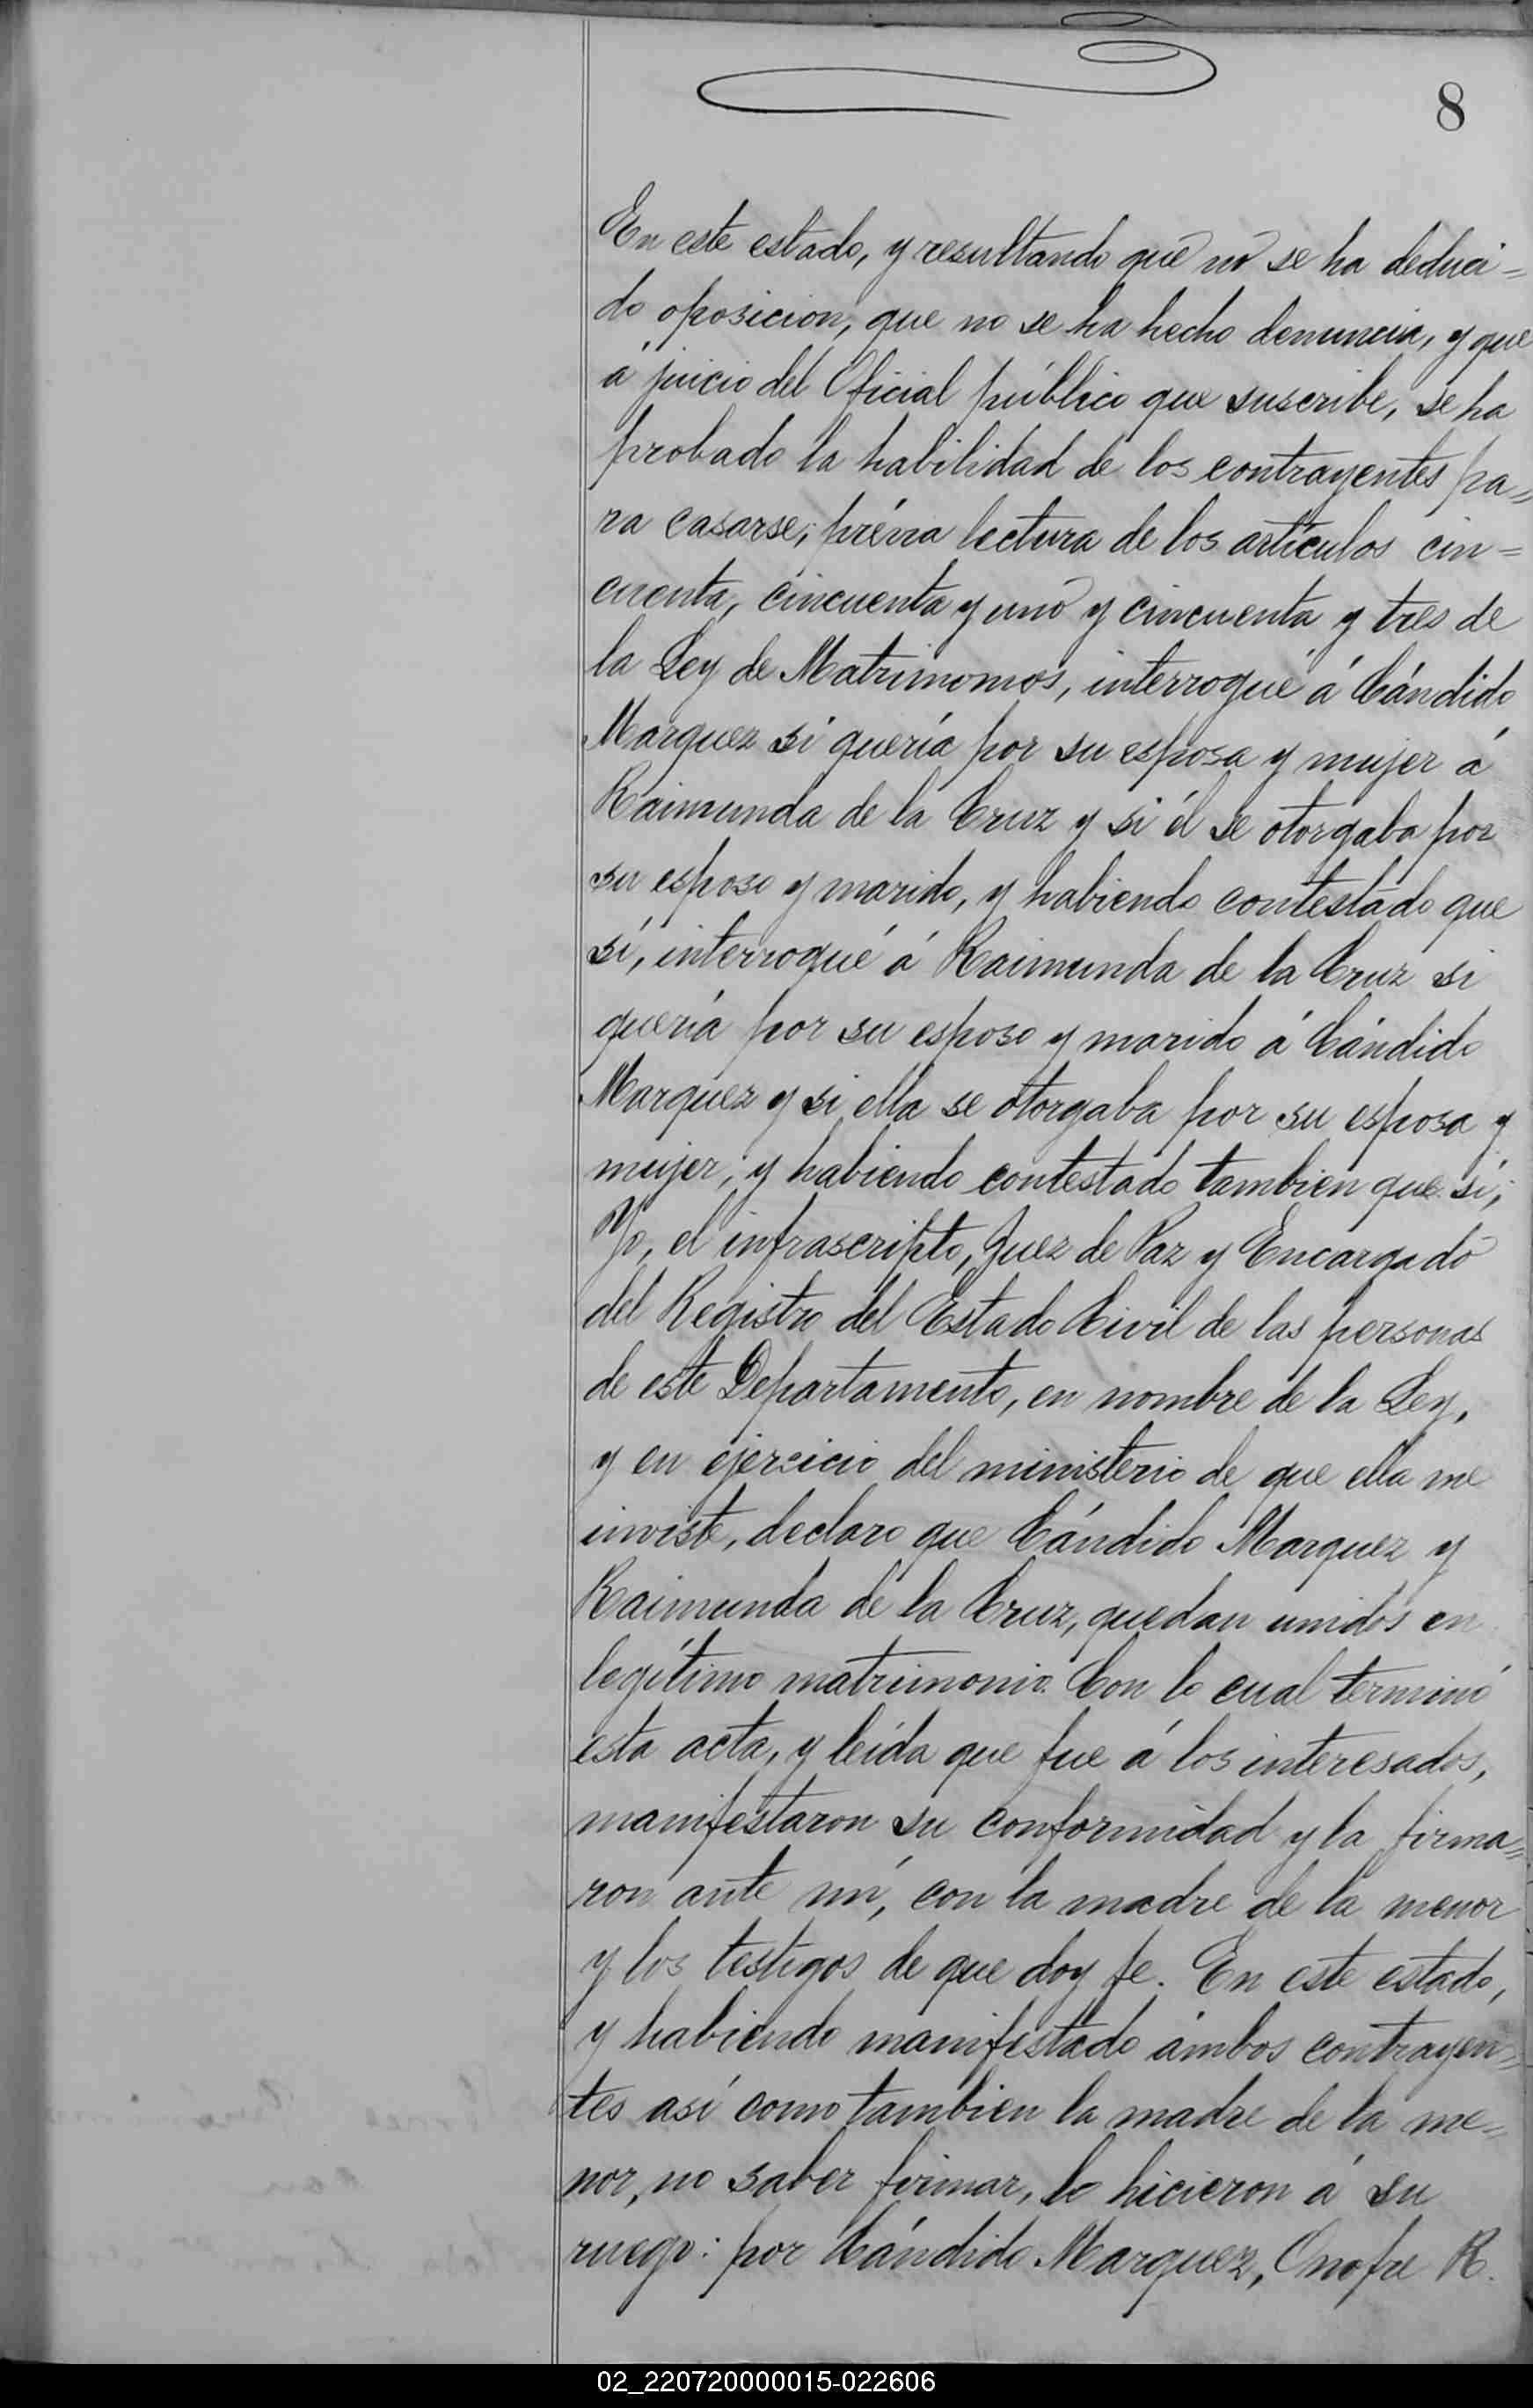 8
En este estado, y resultando que no se ha deduci=
do oposicion, que no se ha hecho denuncia, y que
á juicio del Oficial público que suscribe, se ha
probado la habilidad de los contrayentes pa=
ra casarse; prévia lectura de los artículos cin=
cuenta, cincuenta y uno y cincuenta y tres de
la Ley de Matrimonios, interrogué á Cándido
Marquez si quería por su esposa y mujer á
Raimunda de la Cruz y si él se otorgaba por
su esposo y marido, y habiendo contestado que
sí, interrogué á Raimunda de la Cruz si
quería por su esposo y marido á Cándido
Marquez y si ella se otorgaba por su esposa y
mujer; y habiendo contestado tambien que sí;
Yo, el infrascripto, Juez de Paz y Encargado
del Registro del Estado Civil de las personas
de este Departamento, en nombre de la Ley,
y en ejercicio del ministerio de que ella me
inviste, declaro que Cándido Marquez y
Raimunda de la Cruz, quedan unidos en
legítimo matrimonio. Con lo cual terminó
esta acta, y leída que fue á los interesados,
manifestaron su conformidad y la firma=
ron ante mí, con la madre de la menor
y los testigos de que doy fe. En este estado,
y habiendo manifestado ámbos contrayen=
tes así como tambien la madre de la me=
nor, no saber firmar, lo hicieron á su
ruego: por Cándido Marquez, Onofre R.
02_220720000015-022606